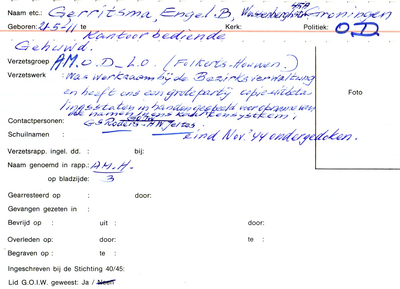 Naam etc.: Gerritsma, Engel. B, Groningen
Geboren: 21-5-11 te Kerk: Politiek: O.D.
Kantoorbediende
Gehuwd.
Verzetsgroep A.M. O.D_L.O. (Folkerts-Houwen.)
Verzetswerk : Was werkzaam bij de Bezirksverwaltung
en heeft ons een grote partij copie
in handen gespeeld voor opname in
Foto
Contactpersonen:
Schuilnaam : eind Nov. '44 ondergedoken.
Verzetsrapp. ingel. dd. : bij:
Naam genoemd in rapp.: A.M.H.
op bladzijde: 3
Gearresteerd op : door:
Gevangen gezeten in :
Bevrijd op : uit : door:
Overleden op: door: te :
Begraven op : te :
Ingeschreven bij de Stichting 40/45:
Lid G.O.I.W. geweest: Ja / Neen